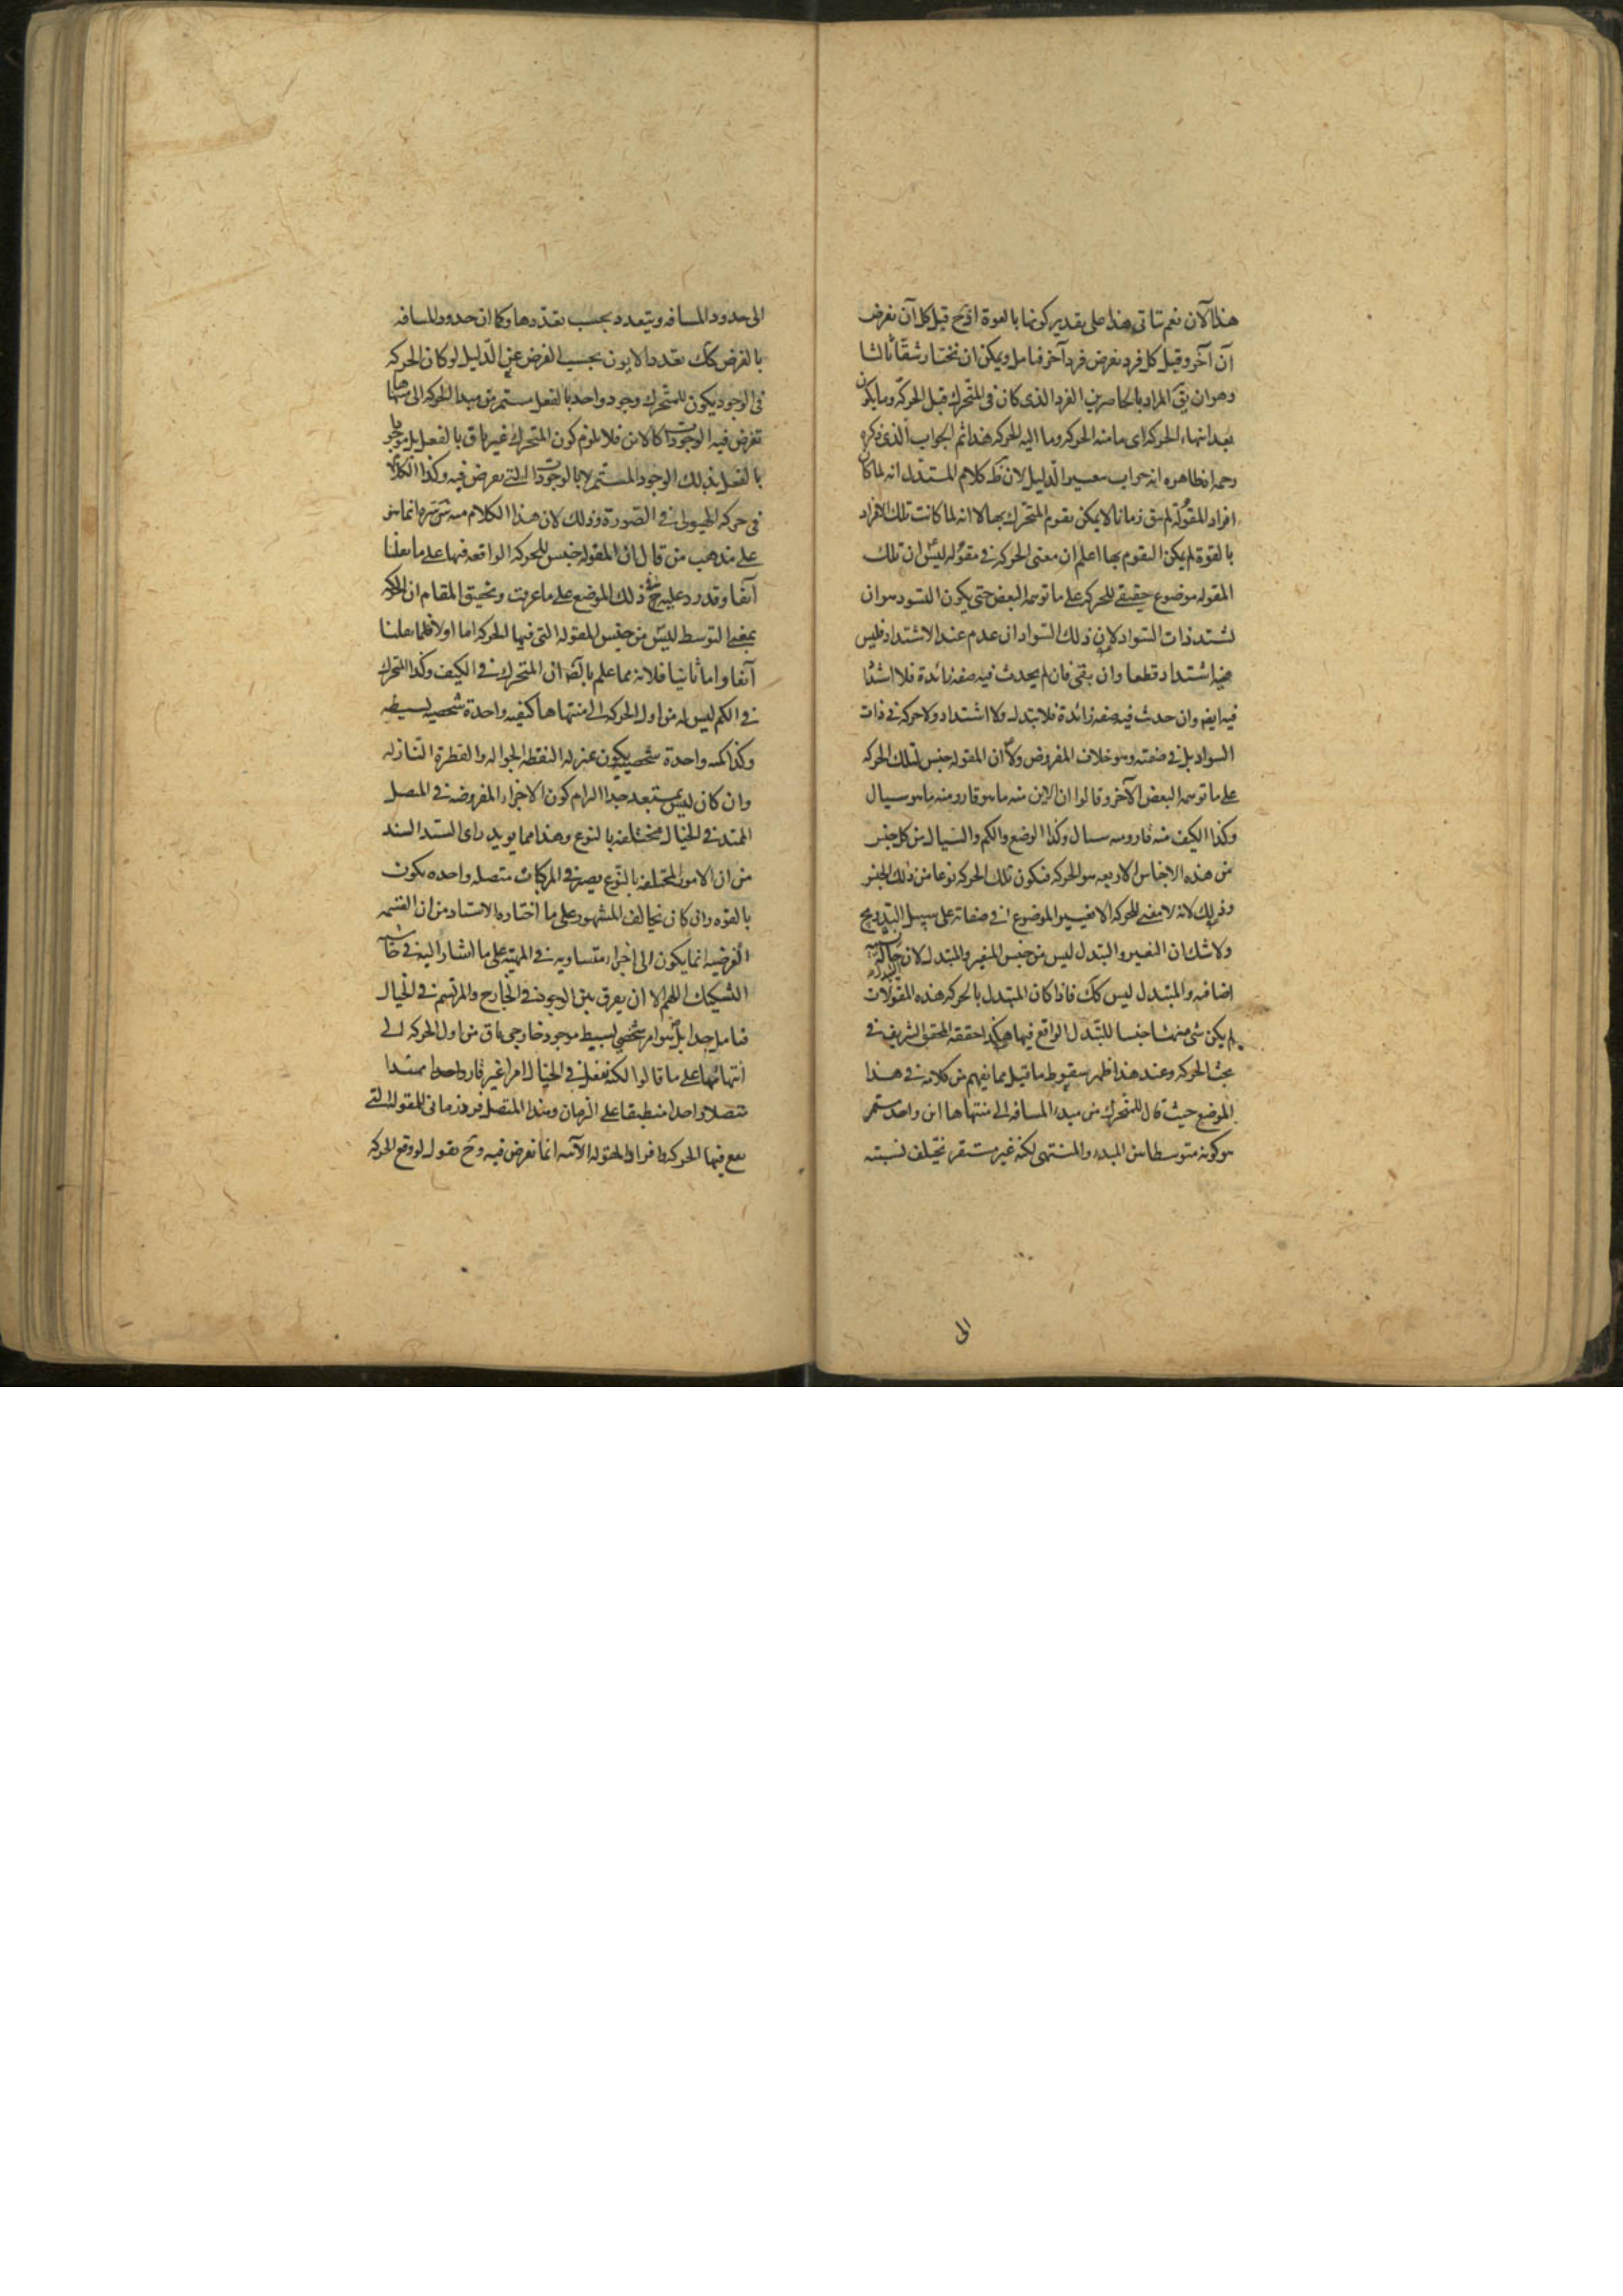 هذا الآن نعم تتأتى هذا على تقدير كونها بالقوة اذ ح قبل كل آن نفرض
آن آخر وقبل كل فرد نفرض فرد آخر فتامل ويمكن ان نختار شقا ثالثا
وهو ان يق المراد بالحاصرين الفرد الذى كان فى المتحرك قبل الحركة وما يكون
بعد انتهاء الحركة اى ما منه الحركة وما اليه الحركة هذا ثم الجواب الذى ذكره
رحمه الله ظاهره انه جواب الدليل لان ظ كلام المستدل انه لما كان
افراد المقولة لم تبق زمانا لا يمكن تقوم المتحرك بها لا انه لما كانت تلك الافراد
بالقوة لم يكن التقوم بها اعلم ان معنى الحركة فى مقولة ليس ان تلك
المقولة موضوع حقيقى للحركة على ما توهمه البعض حتى يكون التسود هو ان
تشتد ذات السواد لان ذلك السواد ان عدم عند الاشتداد فليس
فيه اشتداد قطعا وان بقى فان لم يحدث فيه صفة زائدة فلا اشتداد
فيه ايضا وان حدث فيه صفة زائدة فلا تبدل ولا اشتداد ولا حركة فى ذات
السواد بل فى صفته وهو خلاف المفروض ولا ان المقولة جنس لتلك الحركة
على ما توهمه البعض الآخر وقالوا ان الاين منه ما هو قار ومنه ما هو سيال
وكذا الكيف منه قار ومنه سيال وكذا الوضع والكم والسيال من كل جنس
من هذه الاجناس الاربعة هو الحركة فتكون تلك الحركة نوعا من ذلك الجنس
وذلك لانه لا معنى للحركة الا تغيير الموضوع فى صفاته على سبيل التدريج
ولا شك ان التغير والتبدل ليس من جنس المتغير والمتبدل لان حالة
اضافية والمتبدل ليس كك فاذا كان المتبدل بالحركة هذه المقولات
لم يكن شئ منها جنسا للتبدل الواقع فيها هكذا حققه المحقق الشريف فى
بحث الحركة وعند هذا ظهر سقوط ما قيل مما يفهم من كلامه فى هذا
الموضع حيث قال للمتحرك من مبدء المسافة الى منتهاها اين واحد مستمر
هو كونه متوسطا بين المبدء والمنتهى لكنه غير مستقر تختلف نسبته
الى
الى حدود المسافة ويتعدد بحسب تعددها وكما ان حدود المسافة
بالفرض كك تعدد الايون بحسب الفرض عن الدليل لو كان الحركة
فى الوجود يكون للمتحرك وجود واحد بالفعل مستمر من مبدا الحركة الى منتهاها
تفرض فيه الوجودات كالاين فلا يلزم كون المتحرك غير باق بالفعل بل موجود
بالفعل بذلك الوجود المستمر لا بالوجودات التى تعرض فيه وكذا الكلام
فى حركة الهيولى فى الصورة وذلك لان هذا الكلام منه انما
على مذهب من قال ان المقولة جنس للحركة الواقعة فيها على ما نقلنا
آنفا وقد ورد عليه ذلك الموضع على ما عرفت وتحقيق المقام ان الحركة
بمعنى التوسط ليس من جنس المقولة التى فيها الحركة اما اولا فلما نقلنا
آنفا واما ثانيا فلانه مما علم ان المتحرك فى الكيف وكذا المتحرك
فى الكم ليس له من اول الحركة الى منتهاها كيفية واحدة شخصية بسيطة
وكذا كمية واحدة شخصية يكون بمنزلة النقطة الجوالة والقطرة النازلة
وان كان ليس بمستبعد جدا الزام كون الاجزاء المفروضة فى المتصل
الممتد فى الخيال مختلفة بالنوع وهذا مما يؤيد راى السيد السند
من ان الامور المختلفة بالنوع يصير فى المركبات متصلة واحدة يكون
بالقوة وان كان يخالف المشهور على ما اختاره الاستاد من ان القسمة
الفرضية انما يكون الى اجزاء متساوية فى المهية على ما اشار اليه فى
التشكيك اللهم الا ان يفرق بين الوجود فى الخارج والمرتسم فى الخيال
فتامل جدا بل هو امر شخصى بسيط موجود خارجى باق من اول الحركة الى
انتهائها على ما قالوا لكنه يفعل فى الخيال امرا غير قار واحدا ممتدا
متصلا واحدا منطبقا على الزمان وهذا المتصل فرد زمانى للمقولة التى
تقع فيها الحركة وافراد المقولة الآنية انما تفرض فيه وح نقول لو وقع الحركة